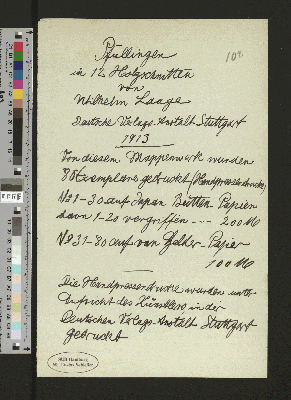 Pfullingen
104
in 12 Holzschnitten
von
Wilhelm Laage
Deutsche Verlags-Anstalt Stuttgart
1913
Von diesem Mappenwerk wurden
80 Exemplare gedruckt (Handpressendrucke)
No 1-30 auf Japan Bütten Papier
davon 1-20 vergriffen --- 200 M
No 31-80 auf van Gelder-Papier
100 M
Die Handpressendrucke wurden unter
Aufsicht des Künstlers in der
Deutschen Verlags-Anstalt Stuttgart
gedruckt
SUB Hamburg